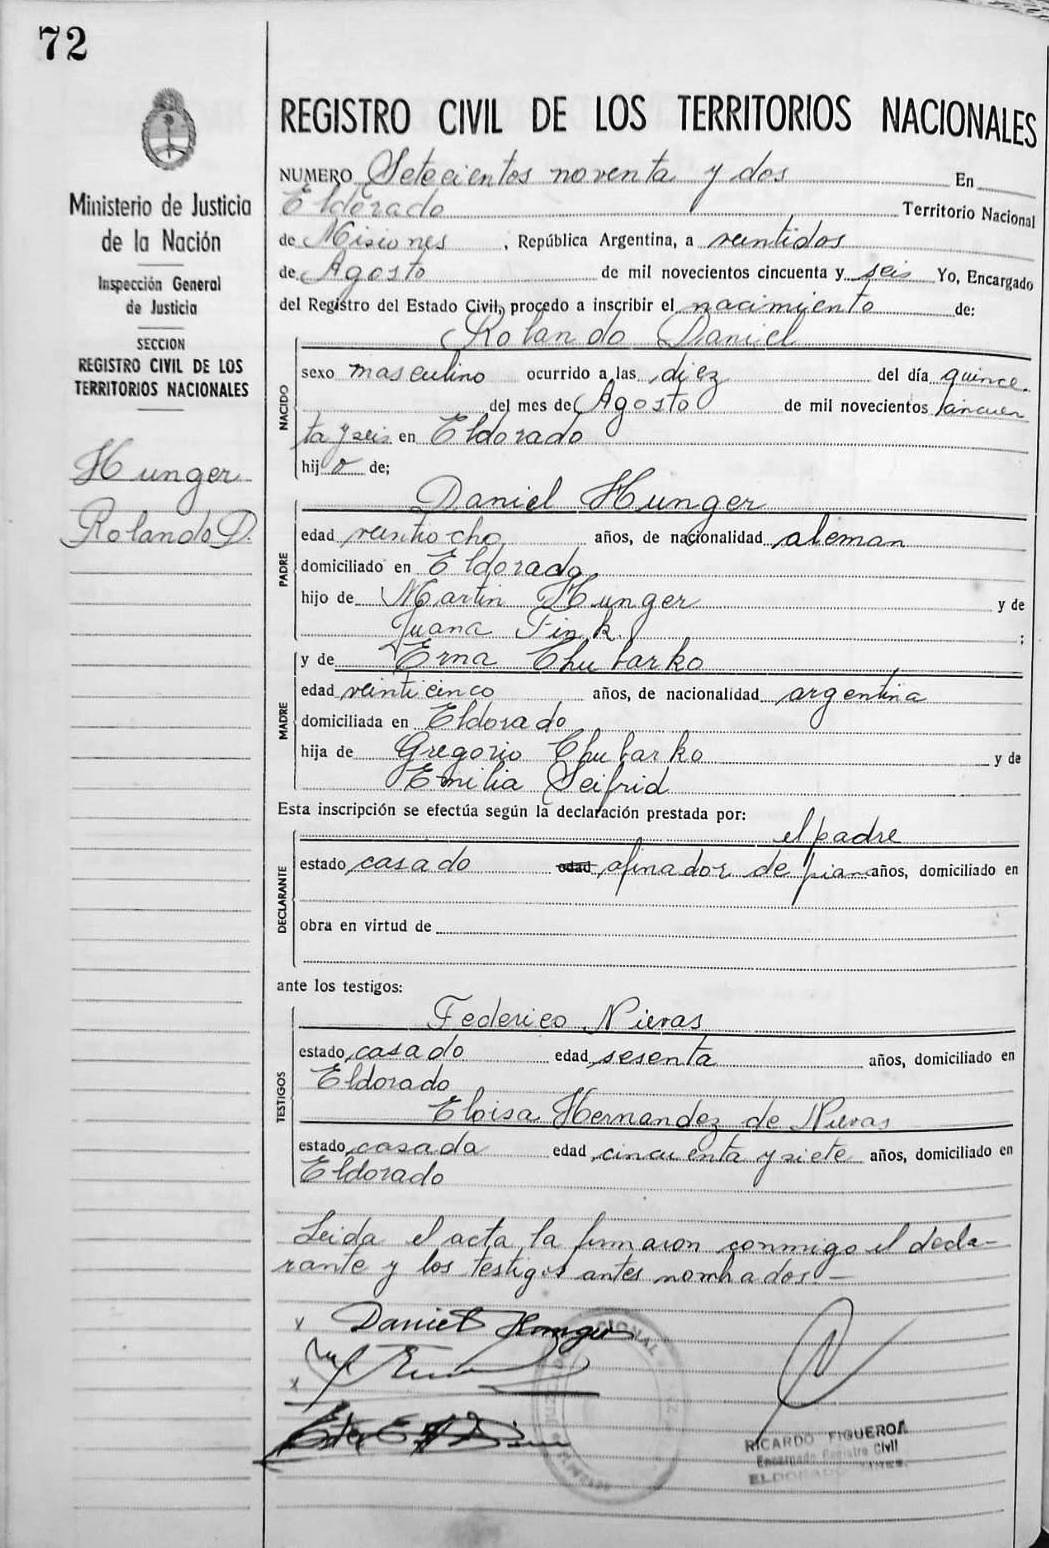 72
REGISTRO CIVIL DE LOS TERRITORIOS NACIONALES
Ministerio de Justicia
de la Nación
Inspección General
de Justicia
SECCION
REGISTRO CIVIL DE LOS
TERRITORIOS NACIONALES
Hunger
Rolando D.
NUMERO Setecientos noventa y dos En
Eldorado Territorio Nacional
de Misiones, República Argentina, a veintidos
de Agosto de mil novecientos cincuenta y seis Yo, Encargado
del Registro del Estado Civil, procedo a inscribir el nacimiento de:
Rolando Daniel
NACIDO
sexo masculino ocurrido a las diez del día quince
del mes de Agosto de mil novecientos cincuen
ta y seis en Eldorado
hijo de;
Daniel Hunger
PADRE
edad veintiocho años, de nacionalidad aleman
domiciliado en Eldorado
hijo de Martin Hunger y de
Juana Fink ;
y de Erna Chubarko
MADRE
edad veinticinco años, de nacionalidad argentina
domiciliada en Eldorado
hija de Gregorio Chubarko y de
Emilia Seifrid
Esta inscripción se efectúa según la declaración prestada por:
el padre
DECLARANTE
estado casado edad afinador de piano años, domiciliado en
obra en virtud de
ante los testigos:
Federico Nieras
TESTIGOS
estado casado edad sesenta años, domiciliado en
Eldorado
Eloisa Hernandez de Nieras
estado casada edad cincuenta y siete años, domiciliado en
Eldorado
Leida el acta, la firmaron conmigo el decla-
rante y los testigos antes nombrados.-
x Daniel Hunger
x
RICARDO FIGUEROA
Encargado Registro Civil
ELDORADO